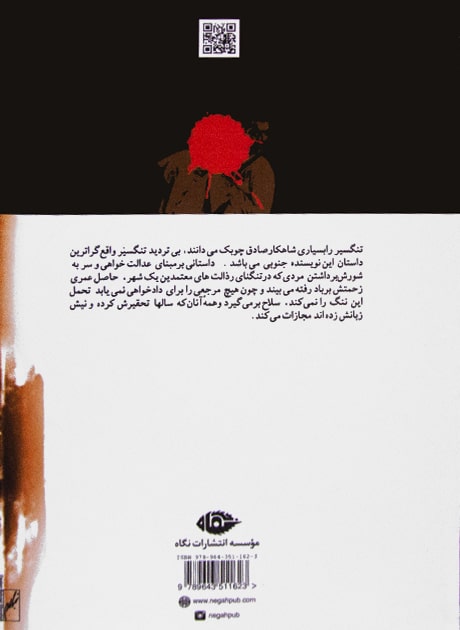 تنگسیر رابسیاری شاهکارصادق چوبک می دانند، بی تردید تنگسیر واقع گراترین
داستان این نویسنده جنوبی می باشد . داستانی برمبنای عدالت خواهی و سر به
شورش برداشتن مردی که درتنگنای رذالت های معتمدین یک شهر، حاصل عمری
زحمتش برباد رفته می بیند و چون هیچ مرجعی را برای دادخواهی نمی یابد تحمل
این ننگ را نمی کند، سلاح برمی گیرد و همه آنان که سالها تحقیرش کرده و نیش
زبانش زده اند مجازات می کند.
مؤسسه انتشارات نگاه
ISBN 978-964-351-162-3
9 789643 511623 >
www.negahpub.com
negahpub